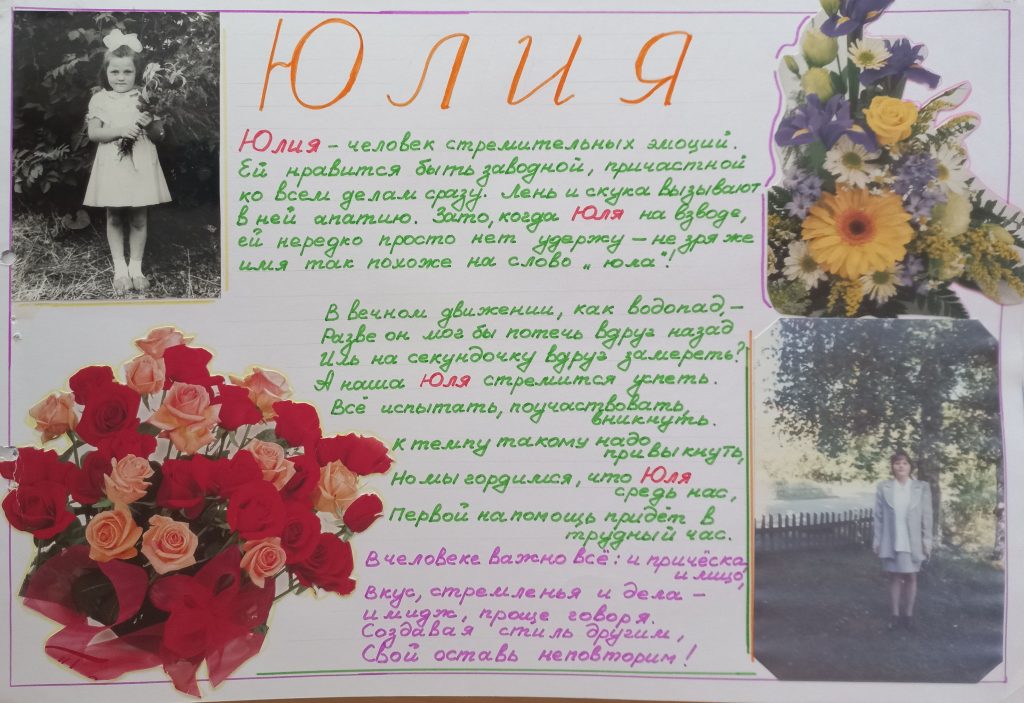 ЮЛИЯ
Юлия – человек стремительных эмоций.
Ей нравится быть заводной, причастной
ко всем делам сразу. Лень и скука вызывают
в ней апатию. Зато, когда Юля на взводе,
ей нередко просто нет удержу – не зря же
имя так похоже на слово „юла"!
В вечном движении, как водопад, –
Разве он мог бы потечь вдруг назад
Иль на секундочку вдруг замереть?
А наша Юля стремится успеть.
Всё испытать, поучаствовать,
вникнуть.
К темпу такому надо
привыкнуть,
Но мы гордимся, что Юля
средь нас,
Первой на помощь придёт в
трудный час.
В человеке важно всё: и причёска,
и лицо,
Вкус, стремленья и дела –
имидж, проще говоря.
Создавая стиль другим,
Свой оставь неповторим!